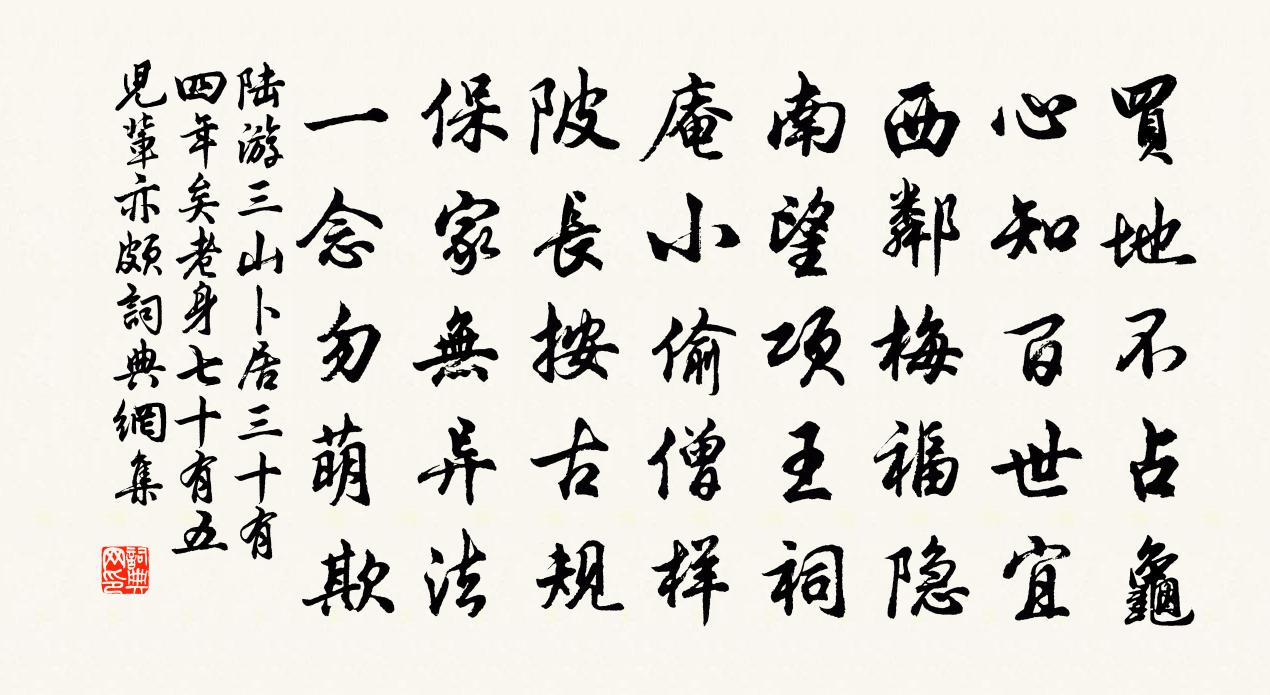 買地不占龜
心知百世宜
西鄰梅福隐
南望项王祠
庵小偷僧样
陂長按古规
保家無异法
一念勿萌欺
陆游三山卜居三十有
四年矣老身七十有五
児軰亦頗詞典網集
詞典网印